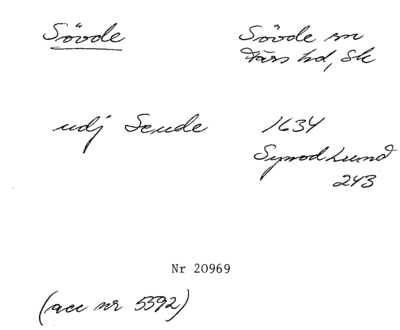 Sövde
Sövde sn
Färs hd, Sk
udj Seude
1634
Synod Lund
243
Nr 20969
(acc nr 5592)